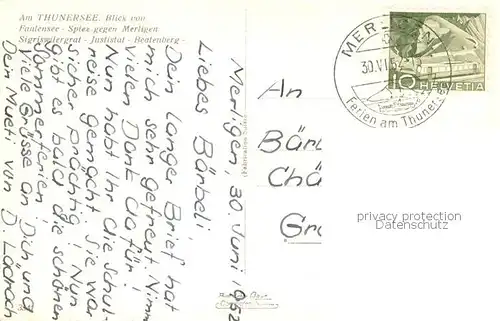 Am THUNERSEE. Blick von
Faulensee - Spiez gegen Merligen
Sigriswilergrat - Justistal - Beatenberg -
Merligen, 30. Juni 1952
Liebes Bärbeli,
Dein langer Brief hat
mich sehr gefreut. Nimm
vielen Dank dafür!
Nun habt Ihr die Schul-
reise gemacht. Sie war
sicher prächtig! Nun
gibt es bald die schönen
Sommerferien.
Viele Grüsse an Dich und
Dein Mueti von D. Lädrach
MERLIGEN
30.VI.52
Ferien am Thunersee
10 HELVETIA
An
Bär
Chä
Gr
privacy protection
Datenschutz